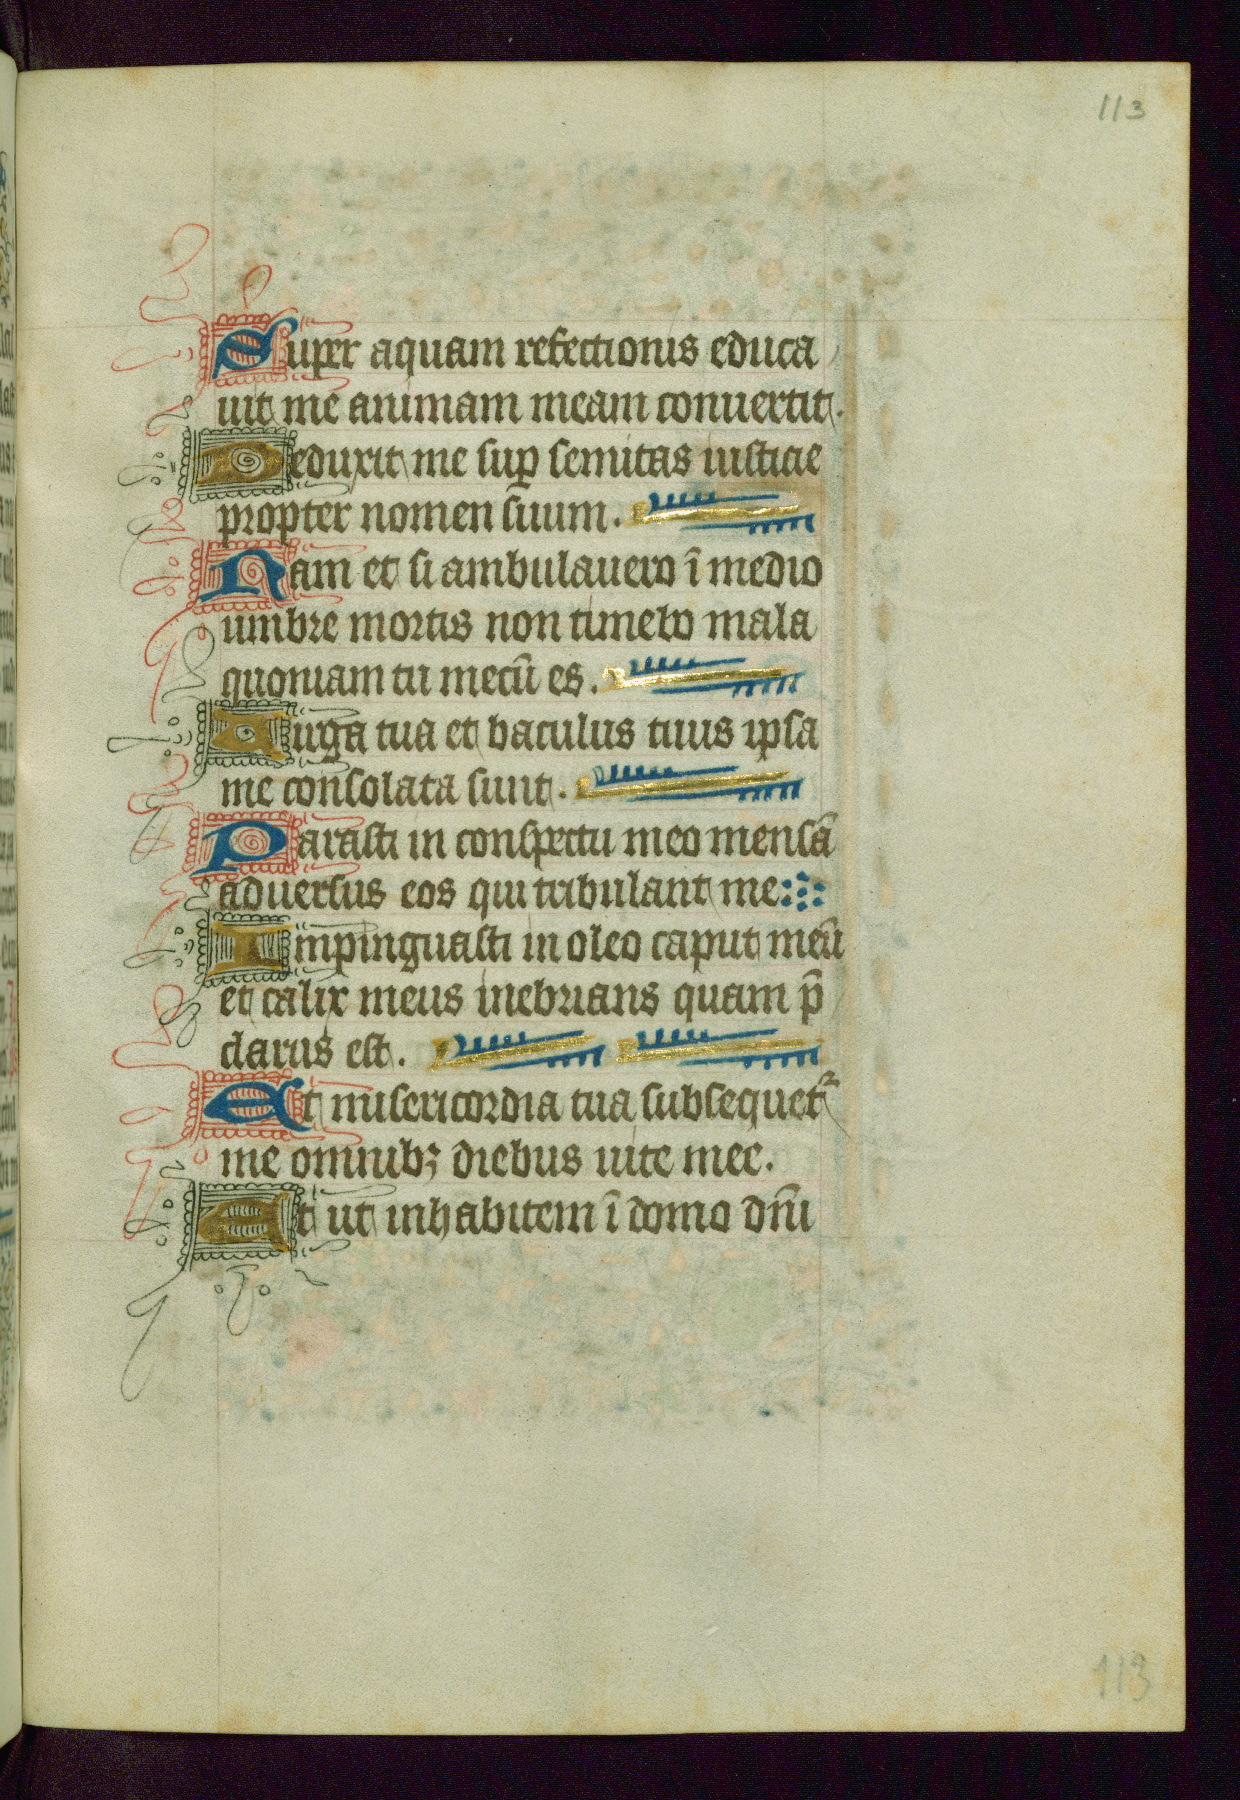 113
Super aquam refectionis educa
uit me animam meam conuertit.
Deduxit me sup̱ semitas iusticie
propter nomen suum.
Nam et si ambulauero ī medio
umbre mortis non timebo mala
quoniam tu mecū es.
Uirga tua et baculus tuus ipsa
me consolata sunt.
Parasti in conspectu meo mensā
aduersus eos qui tribulant me:
Inpinguasti in oleo caput meū
et calix meus inebrians quam p̄
clarus est.
Et misericordia tua subsequet᷑
me omnibꝫ diebus uite mee.
Et ut inhabitem ī domo dn̄i
113